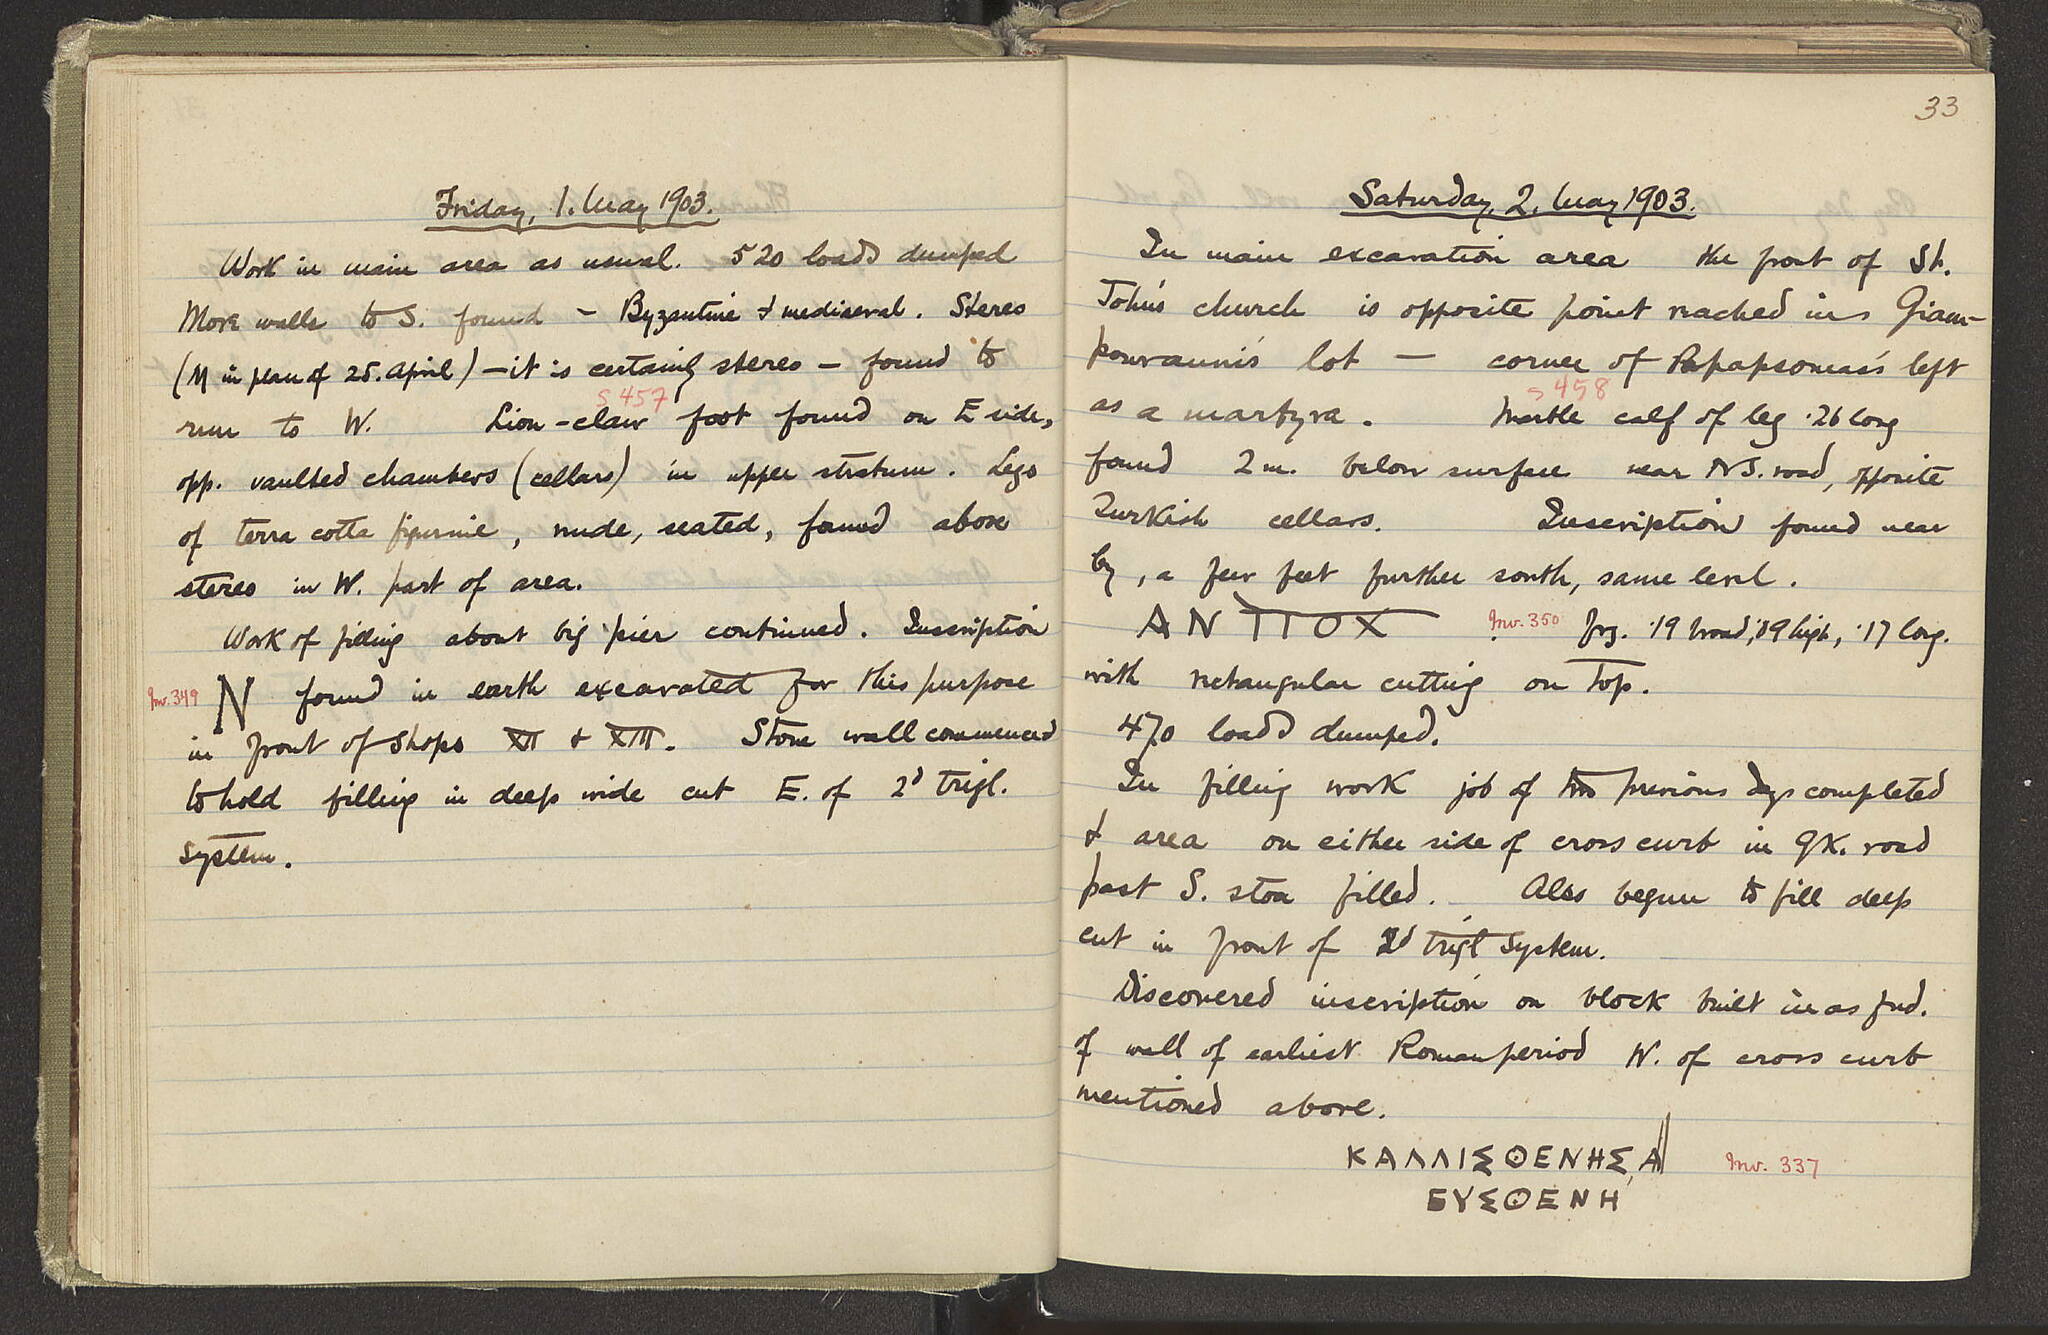 Friday, 1. May 1903.
Work in main area as usual. 520 loads dumped
More walls to S. found – Byzantine & mediaeval. Stereo
(M in plan of 25. April) – it is certainly stereo – found to
S 457
run to W. Lion-claw foot found on E side,
opp. vaulted chambers (cellars) in upper stratum. Legs
of terra cotta figurine, nude, seated, found above
stereo in W. part of area.
Work of filling about big pier continued. Inscription
Inv. 349 N found in earth excavated for this purpose
in front of shops XII & XIII. Stone wall commenced
to hold filling in deep wide cut E. of 2d trigl.
system.
33
Saturday, 2. May 1903.
In main excavation area the front of St.
John's church is opposite point reached in Giam-
pouranni's lot — corner of Papapsomas's left
S 458
as a martyra. Marble calf of leg .26 long
found 2 m. below surface near NS. road, opposite
Turkish cellars. Inscription found near
by, a few feet further south, same level.
ΑΝΤΙΟΧ Inv. 350 frg. .19 broad, .09 high, .17 long.
with rectangular cutting on top.
470 loads dumped.
In filling work job of two previous days completed
& area on either side of cross curb in GK. road
past S. stoa filled. Also begun to fill deep
cut in front of 2d trigl system.
Discovered inscription on block built in as fnd.
of wall of earliest Roman period W. of cross curb
mentioned above.
ΚΑΛΛΙΣΘΕΝΗΣ Α Inv. 337
ΕΥΣΘΕΝΗ